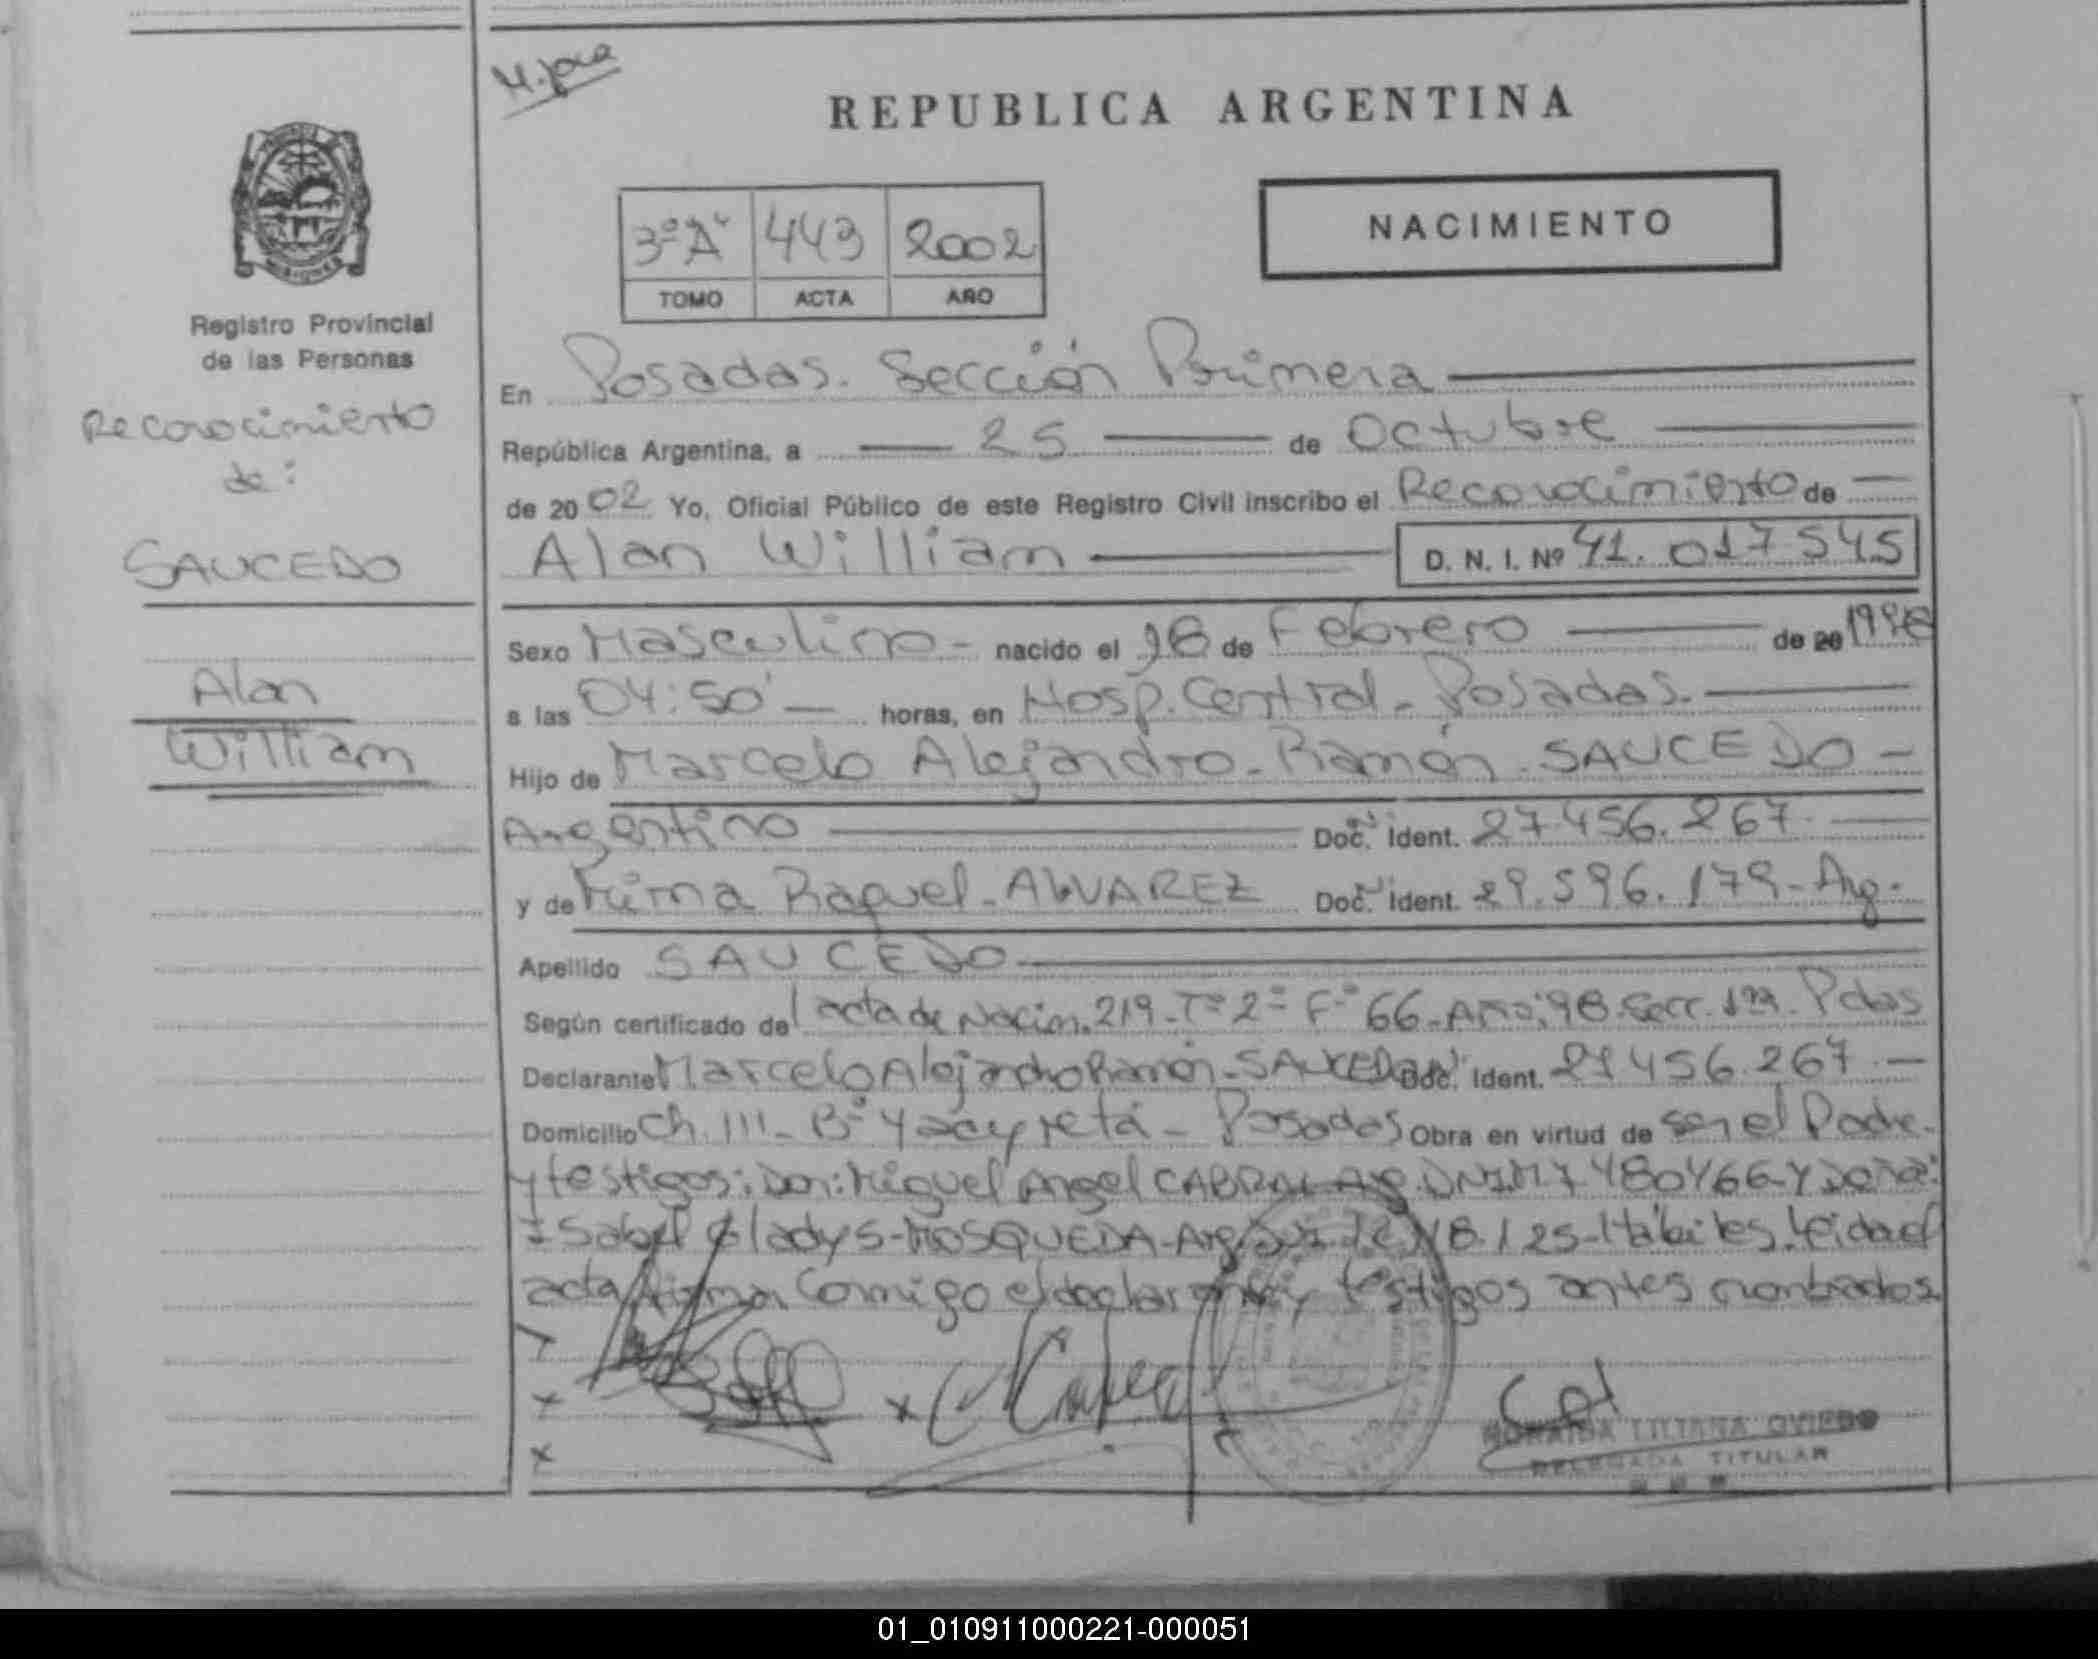 REPUBLICA ARGENTINA
NACIMIENTO
3º "A" 443 2002
TOMO ACTA AÑO
MISIONES
Registro Provincial
de las Personas
Reconocimiento
de:
SAUCEDO
Alan
William
En Posadas. Sección Primera
República Argentina, a 25 de Octubre
de 2002 Yo, Oficial Público de este Registro Civil inscribo el Reconocimiento de
Alan William D. N. I. Nº 41.017545
Sexo Masculino - nacido el 18 de Febrero de 20 1998
a las 04:50' horas, en Hosp. Central - Posadas.
Hijo de Marcelo Alejandro - Ramón - SAUCEDO -
Argentino Doc. Ident. 27.456.267.
y de Mirna Raquel - ALVAREZ Doc. Ident. 29.596.179 - Arg.
Apellido SAUCEDO
Según certificado de acta de Nacim. 219 - Tº 2º Fº 66 - Año: 98. Secc. 1ra. Pdas
Declarante Marcelo Alejandro Ramón - SAUCEDO Doc. Ident. 27456.267 -
Domicilio Ch. 111 - Bº Yacyretá - Posadas Obra en virtud de ser el Padre -
y testigos: Don: Miguel Angel CABRAL Arg. DNI M 7480466 y Doña:
Isabel Gladys - MOSQUEDA - Arg. - Hábiles. Leida el
acta firman conmigo el declarante y testigos antes nombrados
LILIANA OVIEDO
DELEGADA TITULAR
01_010911000221-000051